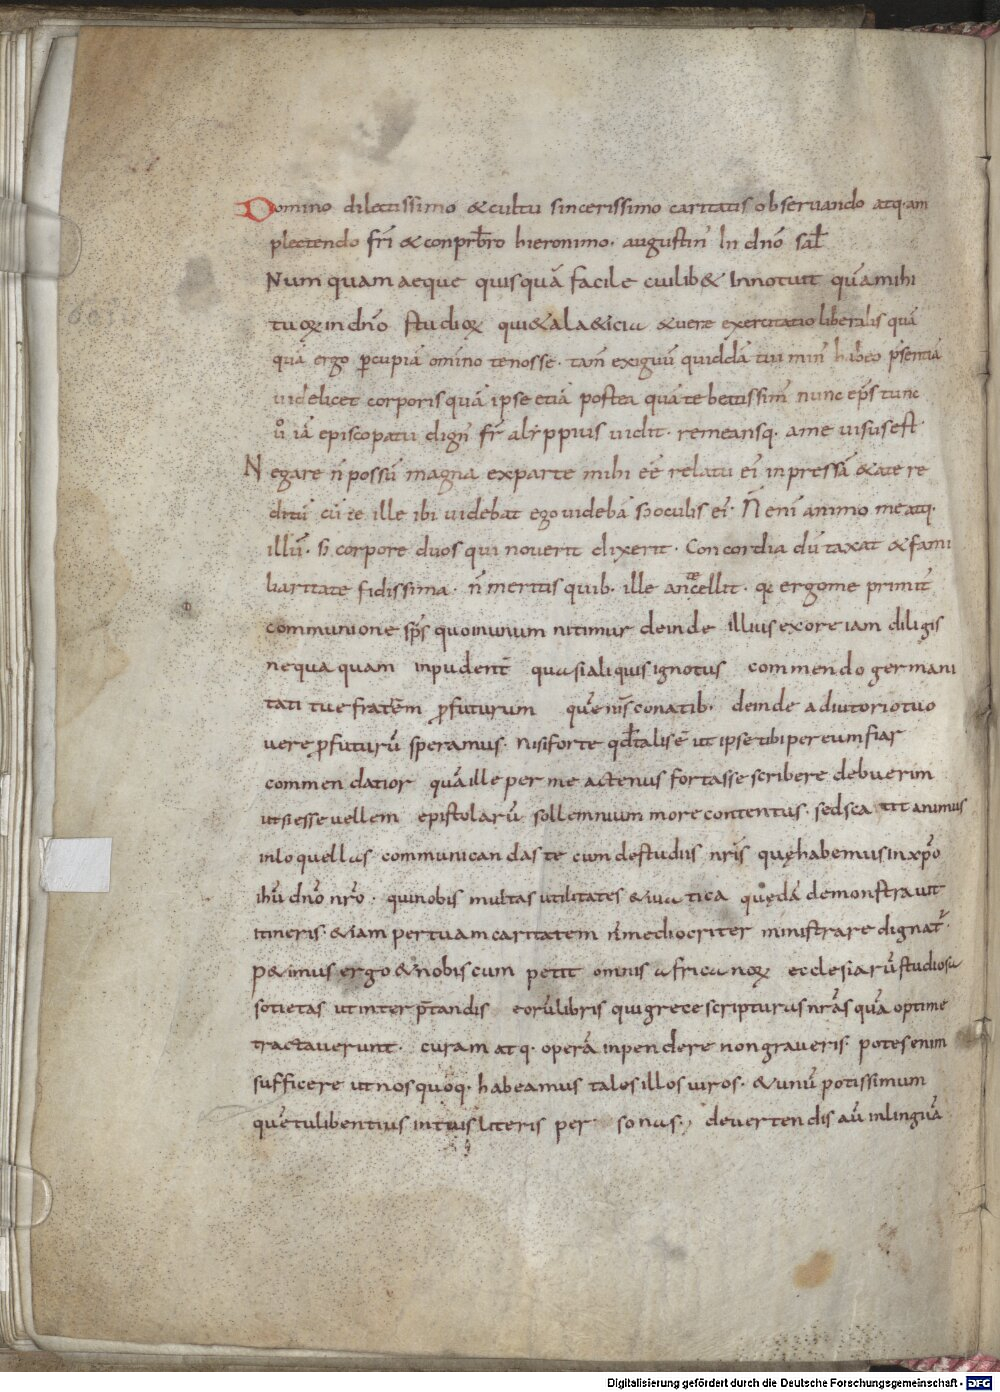 Domino dilectissimo & cultu sincerissimo caritatis observando atq· am
plectendo fr̄i & conprb̄ro hieronimo· augustin' In dn̄o sal̄
Num quam aeque quisquā facile cuilib& Innotuit quā mihi
tuoꝝ in dn̄o studioꝝ qui&a la&icia &vere exercitatio liberalis quā
quā ergo ꝑcupiā om̄ino te nosse· tam̄ exiguū quiddā tui min' habeo p̄sentiā
videlicet corporis quā ipse etiā postea quā te beatissim' nunc ep̄s tunc
u° iā episcopatu dign' fr̄ alyppius vidit· remeansq· a me visus est
Negare n̄ possū magna ex parte mihi eē relatu ei' inpressā & ate re
ditū cū te ille ibi videbat ego videbā s; oculis ei'· N̄ eni animo me atq·
illū· s; corpore duos qui noverit dixerit· Concordia dū taxat & fami
liaritate fidissima· n̄ meritis quib· ille antecellit· q; ergo me primit'
communione sp̄s quo in unum nitimur deinde illius ex ore iam diligis
nequa quam inpudent' quasi aliquis ignotus commendo germani
tati tue fratrēm ꝓfuturum quē n̄is conatib· deinde adiutorio tuo
vere ꝓfuturū speramus· nisi forte qd̄ talis ē ut ipse tibi per eum fiar
commendatior quā ille per me actenus fortasse scribere debuerim
ut si esse vellem epistolarū sollemnium more contentus· sed sca tit animus
in loquellas communicandas tecum de studiis nr̄is quę habemus in xp̄o
ih̄u dn̄o nr̄o· qui nobis multas utilitates & viatica quędā demonstravit
itineris· &iam per tuam caritatem n̄ mediocriter ministrare dignat'·
p&imus ergo & nobis cum petit omnis africanoꝝ ecclesiarū studiosa
societas ut interp̄tandis eorū libris qui grece scripturas nr̄as quā optime
tractaverunt· curam atq· operā inpendere non graveris· potes enim
sufficere ut nos quoq· habeamus tales illos viros· & unū potissimum
quē tu libentius in tuis literis per sonas· de vertendis aū in linguā